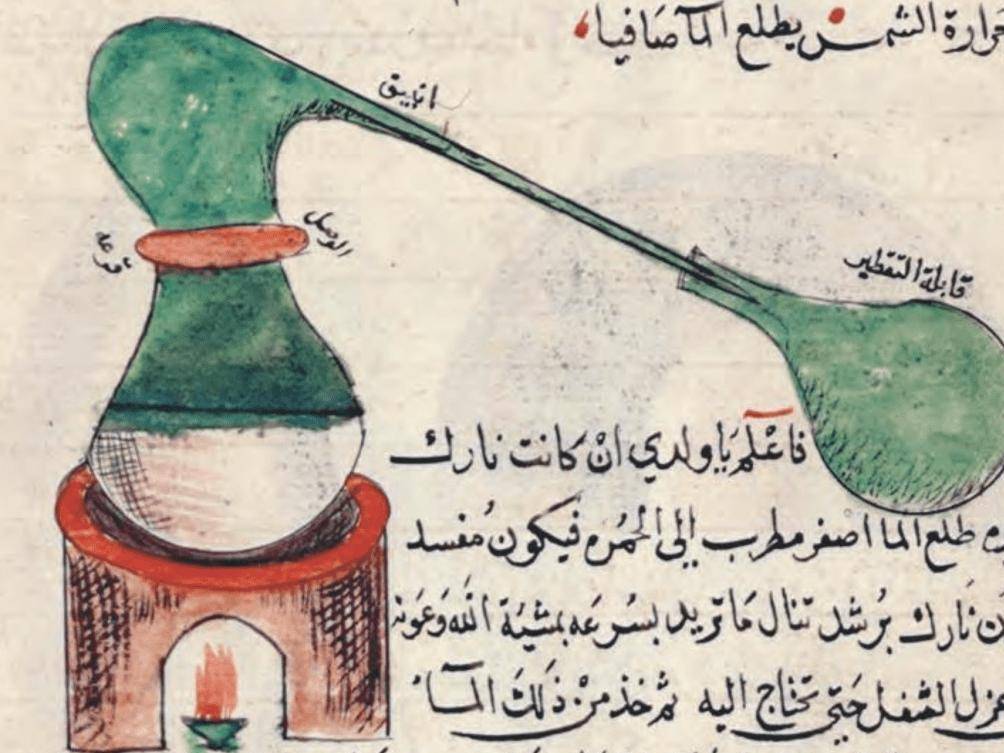 حرارة الشمس يطلع المآ صافيا
انبيق
الوصل
قرعه
قابلة التقطير
فاعْلم يَا ولدي انْ كانت نارك
طلع الما اصفر مطرب إلي الحُمره فيكون مُفسد
نَارك برُشد تنال مَا تريد بسُرعَه بمشيَة الله وَعَونه
الشفل حَتي تحتاج اليه ثم خذ منْ ذَلكَ المآ